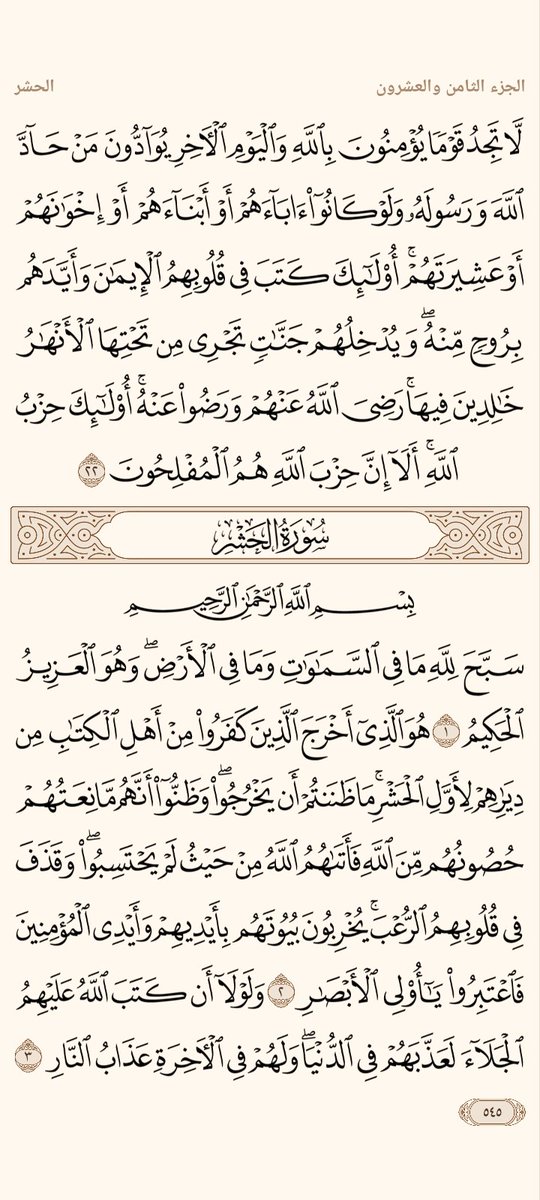 الجزء الثامن والعشرون
الحشر
لَّا تَجِدُ قَوۡمًا يُؤۡمِنُونَ بِٱللَّهِ وَٱلۡيَوۡمِ ٱلۡأٓخِرِ يُوَآدُّونَ مَنۡ حَآدَّ
ٱللَّهَ وَرَسُولَهُۥ وَلَوۡ كَانُوٓاْ ءَابَآءَهُمۡ أَوۡ أَبۡنَآءَهُمۡ أَوۡ إِخۡوَٰنَهُمۡ
أَوۡ عَشِيرَتَهُمۡۚ أُوْلَٰٓئِكَ كَتَبَ فِي قُلُوبِهِمُ ٱلۡإِيمَٰنَ وَأَيَّدَهُم
بِرُوحٖ مِّنۡهُۖ وَيُدۡخِلُهُمۡ جَنَّٰتٖ تَجۡرِي مِن تَحۡتِهَا ٱلۡأَنۡهَٰرُ
خَٰلِدِينَ فِيهَاۚ رَضِيَ ٱللَّهُ عَنۡهُمۡ وَرَضُواْ عَنۡهُۚ أُوْلَٰٓئِكَ حِزۡبُ
ٱللَّهِۚ أَلَآ إِنَّ حِزۡبَ ٱللَّهِ هُمُ ٱلۡمُفۡلِحُونَ ٢٢
سُورَةُ الحَشۡرِ
بِسۡمِ ٱللَّهِ ٱلرَّحۡمَٰنِ ٱلرَّحِيمِ
سَبَّحَ لِلَّهِ مَا فِي ٱلسَّمَٰوَٰتِ وَمَا فِي ٱلۡأَرۡضِۖ وَهُوَ ٱلۡعَزِيزُ
ٱلۡحَكِيمُ ١ هُوَ ٱلَّذِيٓ أَخۡرَجَ ٱلَّذِينَ كَفَرُواْ مِنۡ أَهۡلِ ٱلۡكِتَٰبِ مِن
دِيَٰرِهِمۡ لِأَوَّلِ ٱلۡحَشۡرِۚ مَا ظَنَنتُمۡ أَن يَخۡرُجُواْۖ وَظَنُّوٓاْ أَنَّهُم مَّانِعَتُهُمۡ
حُصُونُهُم مِّنَ ٱللَّهِ فَأَتَىٰهُمُ ٱللَّهُ مِنۡ حَيۡثُ لَمۡ يَحۡتَسِبُواْۖ وَقَذَفَ
فِي قُلُوبِهِمُ ٱلرُّعۡبَۚ يُخۡرِبُونَ بُيُوتَهُم بِأَيۡدِيهِمۡ وَأَيۡدِي ٱلۡمُؤۡمِنِينَ
فَٱعۡتَبِرُواْ يَٰٓأُوْلِي ٱلۡأَبۡصَٰرِ ٢ وَلَوۡلَآ أَن كَتَبَ ٱللَّهُ عَلَيۡهِمُ
ٱلۡجَلَآءَ لَعَذَّبَهُمۡ فِي ٱلدُّنۡيَاۖ وَلَهُمۡ فِي ٱلۡأٓخِرَةِ عَذَابُ ٱلنَّارِ ٣
٥٤٥